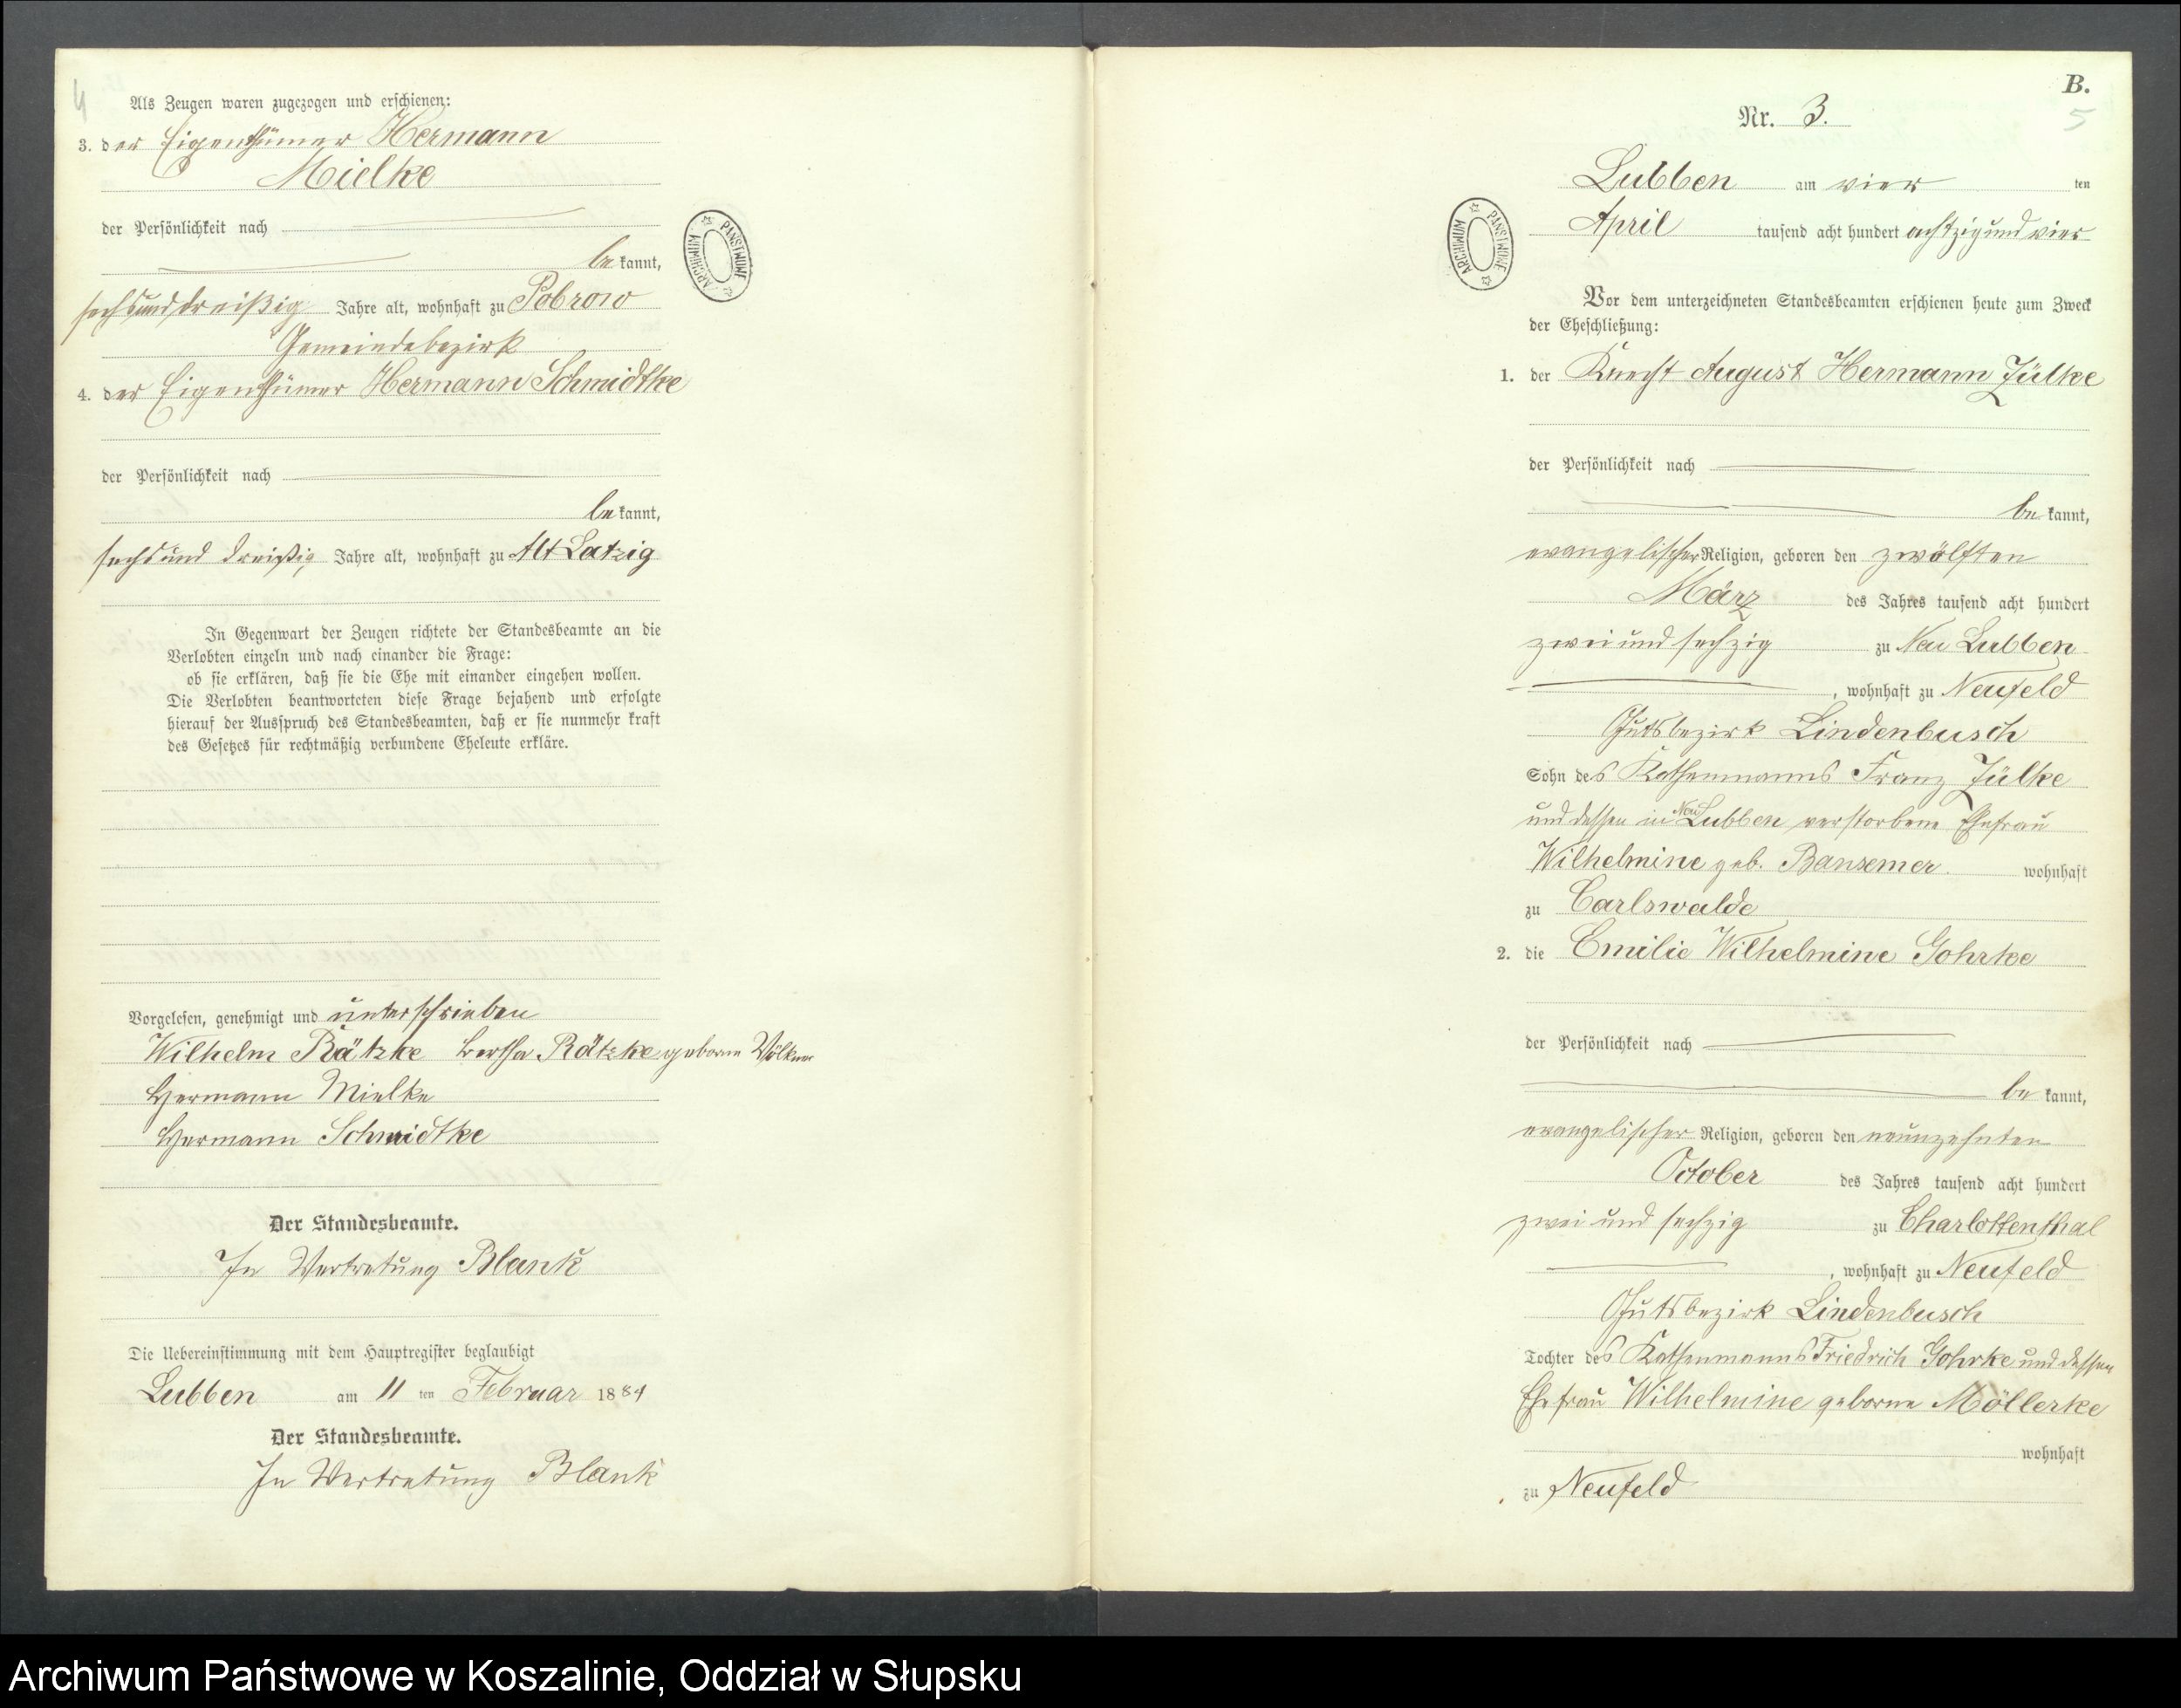 4
Als Zeugen waren zugezogen und erschienen:
3. der Eigenthümer Hermann
Mielke
der Persönlichkeit nach
bekannt,
sechsunddreißig Jahre alt, wohnhaft zu Pobrow
Gemeindebezirk
4. der Eigenthümer Hermann Schmidtke
der Persönlichkeit nach
bekannt,
sechsund dreißig Jahre alt, wohnhaft zu Alt Latzig
In Gegenwart der Zeugen richtete der Standesbeamte an die
Verlobten einzeln und nach einander die Frage:
ob sie erklären, daß sie die Ehe mit einander eingehen wollen.
Die Verlobten beantworteten diese Frage bejahend und erfolgte
hierauf der Ausspruch des Standesbeamten, daß er sie nunmehr kraft
des Gesetzes für rechtmäßig verbundene Eheleute erkläre.
Vorgelesen, genehmigt und unterschrieben
Wilhelm Rätzke Bertha Rätzke geborne Völkner
Hermann Mielke
Hermann Schmidtke
Der Standesbeamte.
In Vertretung Blank
Die Uebereinstimmung mit dem Hauptregister beglaubigt
Lubben am 11 ten Februar 1884
Der Standesbeamte.
In Vertretung Blank
ARCHIWUM PAŃSTWOWE
B.
5
Nr. 3.
Lubben am vier ten
April tausend acht hundert achtzigund vier
ARCHIWUM PAŃSTWOWE
Vor dem unterzeichneten Standesbeamten erschienen heute zum Zweck
der Eheschließung:
1. der Knecht August Hermann Jülke
der Persönlichkeit nach
bekannt,
evangelischer Religion, geboren den zwölften
März des Jahres tausend acht hundert
zwei und sechzig zu Neu Lubben
, wohnhaft zu Neufeld
Gutsbezirk Lindenbusch
Sohn des Kathenmanns Franz Jülke
und dessen in Neu Lubben verstorbene Ehefrau
Wilhelmine geb. Bansemer. wohnhaft
zu Carlswalde
2. die Emilie Wilhelmine Gohrke
der Persönlichkeit nach
bekannt,
evangelischer Religion, geboren den neunzehnten
October des Jahres tausend acht hundert
zwei und sechzig zu Charlottenthal
, wohnhaft zu Neufeld
Gutsbezirk Lindenbusch
Tochter des Kathenmanns Friedrich Gohrke und dessen
Ehefrau Wilhelmine geborne Möllerke
wohnhaft
zu Neufeld
Archiwum Państwowe w Koszalinie, Oddział w Słupsku